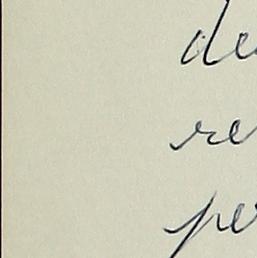 de
re
pe